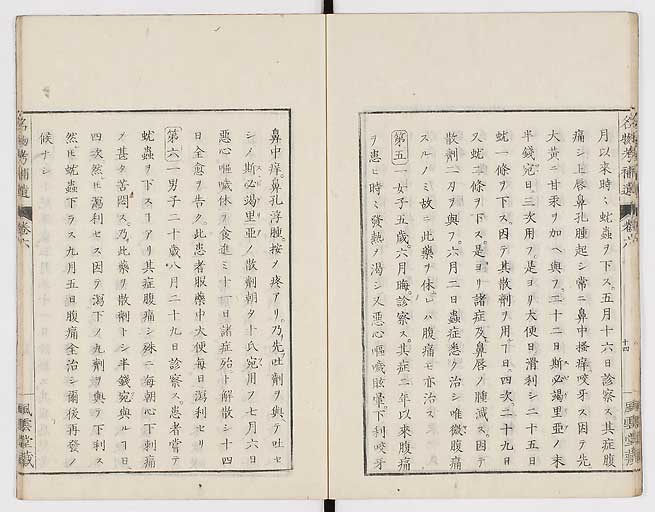 月以来時々蚘蟲ヲ下ス。五月十六日診察ス其症腹
痛シ上唇鼻孔腫起シ常ニ鼻中搔痒咬牙ス因テ先
大黄ニ甘汞ヲ加ヘ與フ。二十二日斯必竭里亜ノ末
半錢宛日ニ三次用フ是ヨリ大便日滑利シ二十五日
蚘一條ヲ下ス。因テ其散劑ヲ用ユヿ日ニ四次、二十九日
又蚘二條ヲ下ス。是ヨリ諸症及ヒ鼻唇ノ腫減ス。因テ
散劑一刀ヲ與フ。六月二日蟲症悉ク治シ唯微ク腹痛
スルノミ故ニ此藥ヲ休レハ腹痛モ亦治ス
第五 一女子五歳。六月晦。診察ス。其症二年以来腹痛
ヲ患ヒ時々發熱ヲ渴シ又悪心嘔嘁眩暈。下利咬牙
名物考補遺
卷六
十四
風雲堂藏
鼻中痒。鼻孔浮腫。按ノ疼アリ。乃先吐劑ヲ與テ吐セ
シメ斯必竭里亜ノ散劑朝夕十氏宛用フ七月六日
悪心嘔嘁休ヲ食進ミ十一日諸症殆ト解散シ十四
日全愈ヲ告ク。此患者服藥中大便毎日瀉利セリ
第六 一男子二十歳八月二十九日診察ス。患者嘗テ
蚘蟲ヲ下スヿアリ其症腹痛シ殊ニ毎朝心下刺痛
ノ甚タ苦悶ス。乃此藥ヲ散劑トシ半錢宛與ルヿ日ニ
四次然𪜈瀉利セス因テ瀉下ノ丸劑ヲ與テ下利ス
然𪜈蚘蟲下ラス九月五日腹痛全治シ爾後再發ノ
候ナシ
名物考補遺
卷六
風雲堂藏